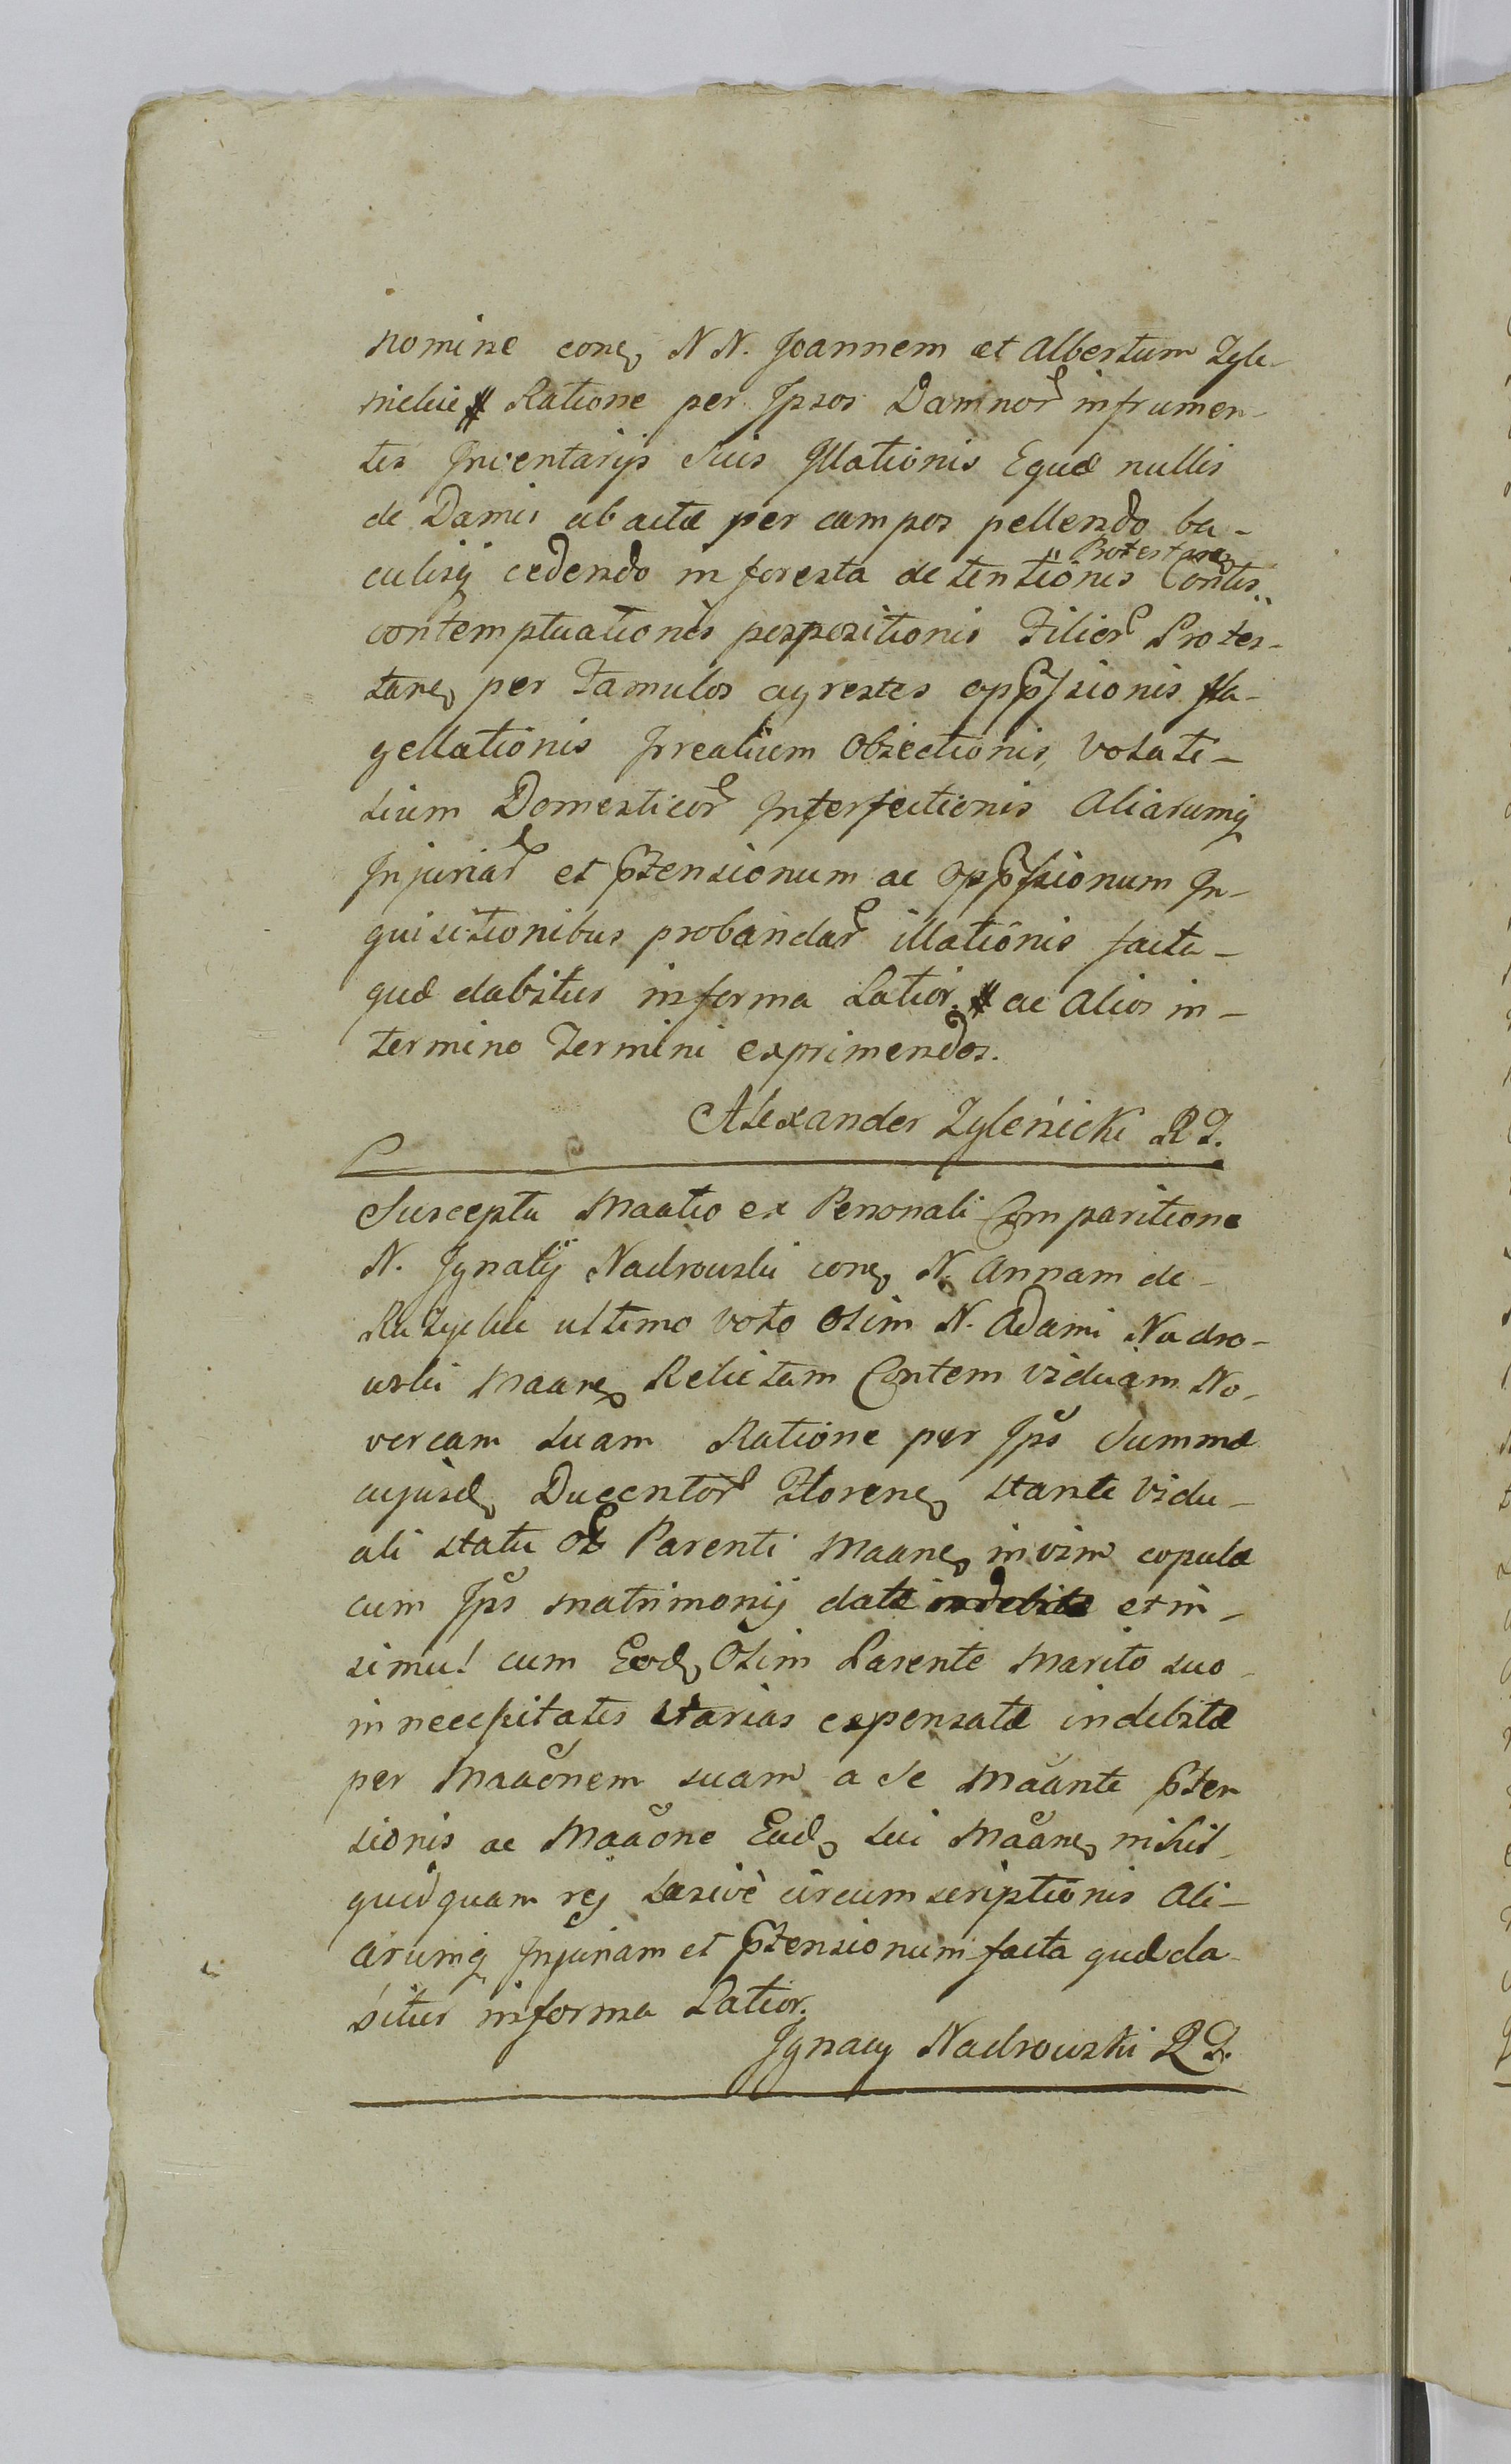 nomine cone, N N. Joannem et Albertum Zyle-
nickie Ratione per Ipsos Damnor infrumen-
tis Inventarijs Suis Illationis Equæ nullis
de Damis abactæ per campos pellendo ba-
Protestane
culisq cedendo in foresta detentionis Contis..
contemptuationis perpositionis Filior Protes-
tane, per Famulos agrestes opp̃ssionis fla-
gellationis Obiectionis, Volati-
lium Domesticor Interfectionis Aliarumq
Injuriar et p̃tensionum ac opp̃ssionum In-
quisitionibus probandar illationis facta-
quæ dabitur in forma Latior. ac Alios in-
termino Termini exprimendos.
Alexander Zyleńicki R I.
Suscepta Maatio ex Personali Comparitione
N. Ignatij Nadrowski cone, N. Annam de-
Rutyckie ultimo voto Olim N. Adami Nadro-
wski Maane, Relictam Contem viduam No-
vercam suam Ratione per Ips Summæ
cujusd, Ducentor Florene, stante vidu-
ali statu Parenti Maane, in vim copulæ
cum Ips matrimonij datæ indebitæ et in-
simul cum Eod, Olim Parente Marito suo
in necessitates varias expensatæ indebitæ
per Maaonem suam a se Maante p̃ten
sionis ac Maaone Ead, sui Maane, nihil-
quidquam rej circumscriptionis Ali-
arumq Injuriam et p̃tensionum facta quæ da-
bitur in forma Latior.
Ignacy Nadrowski R I.